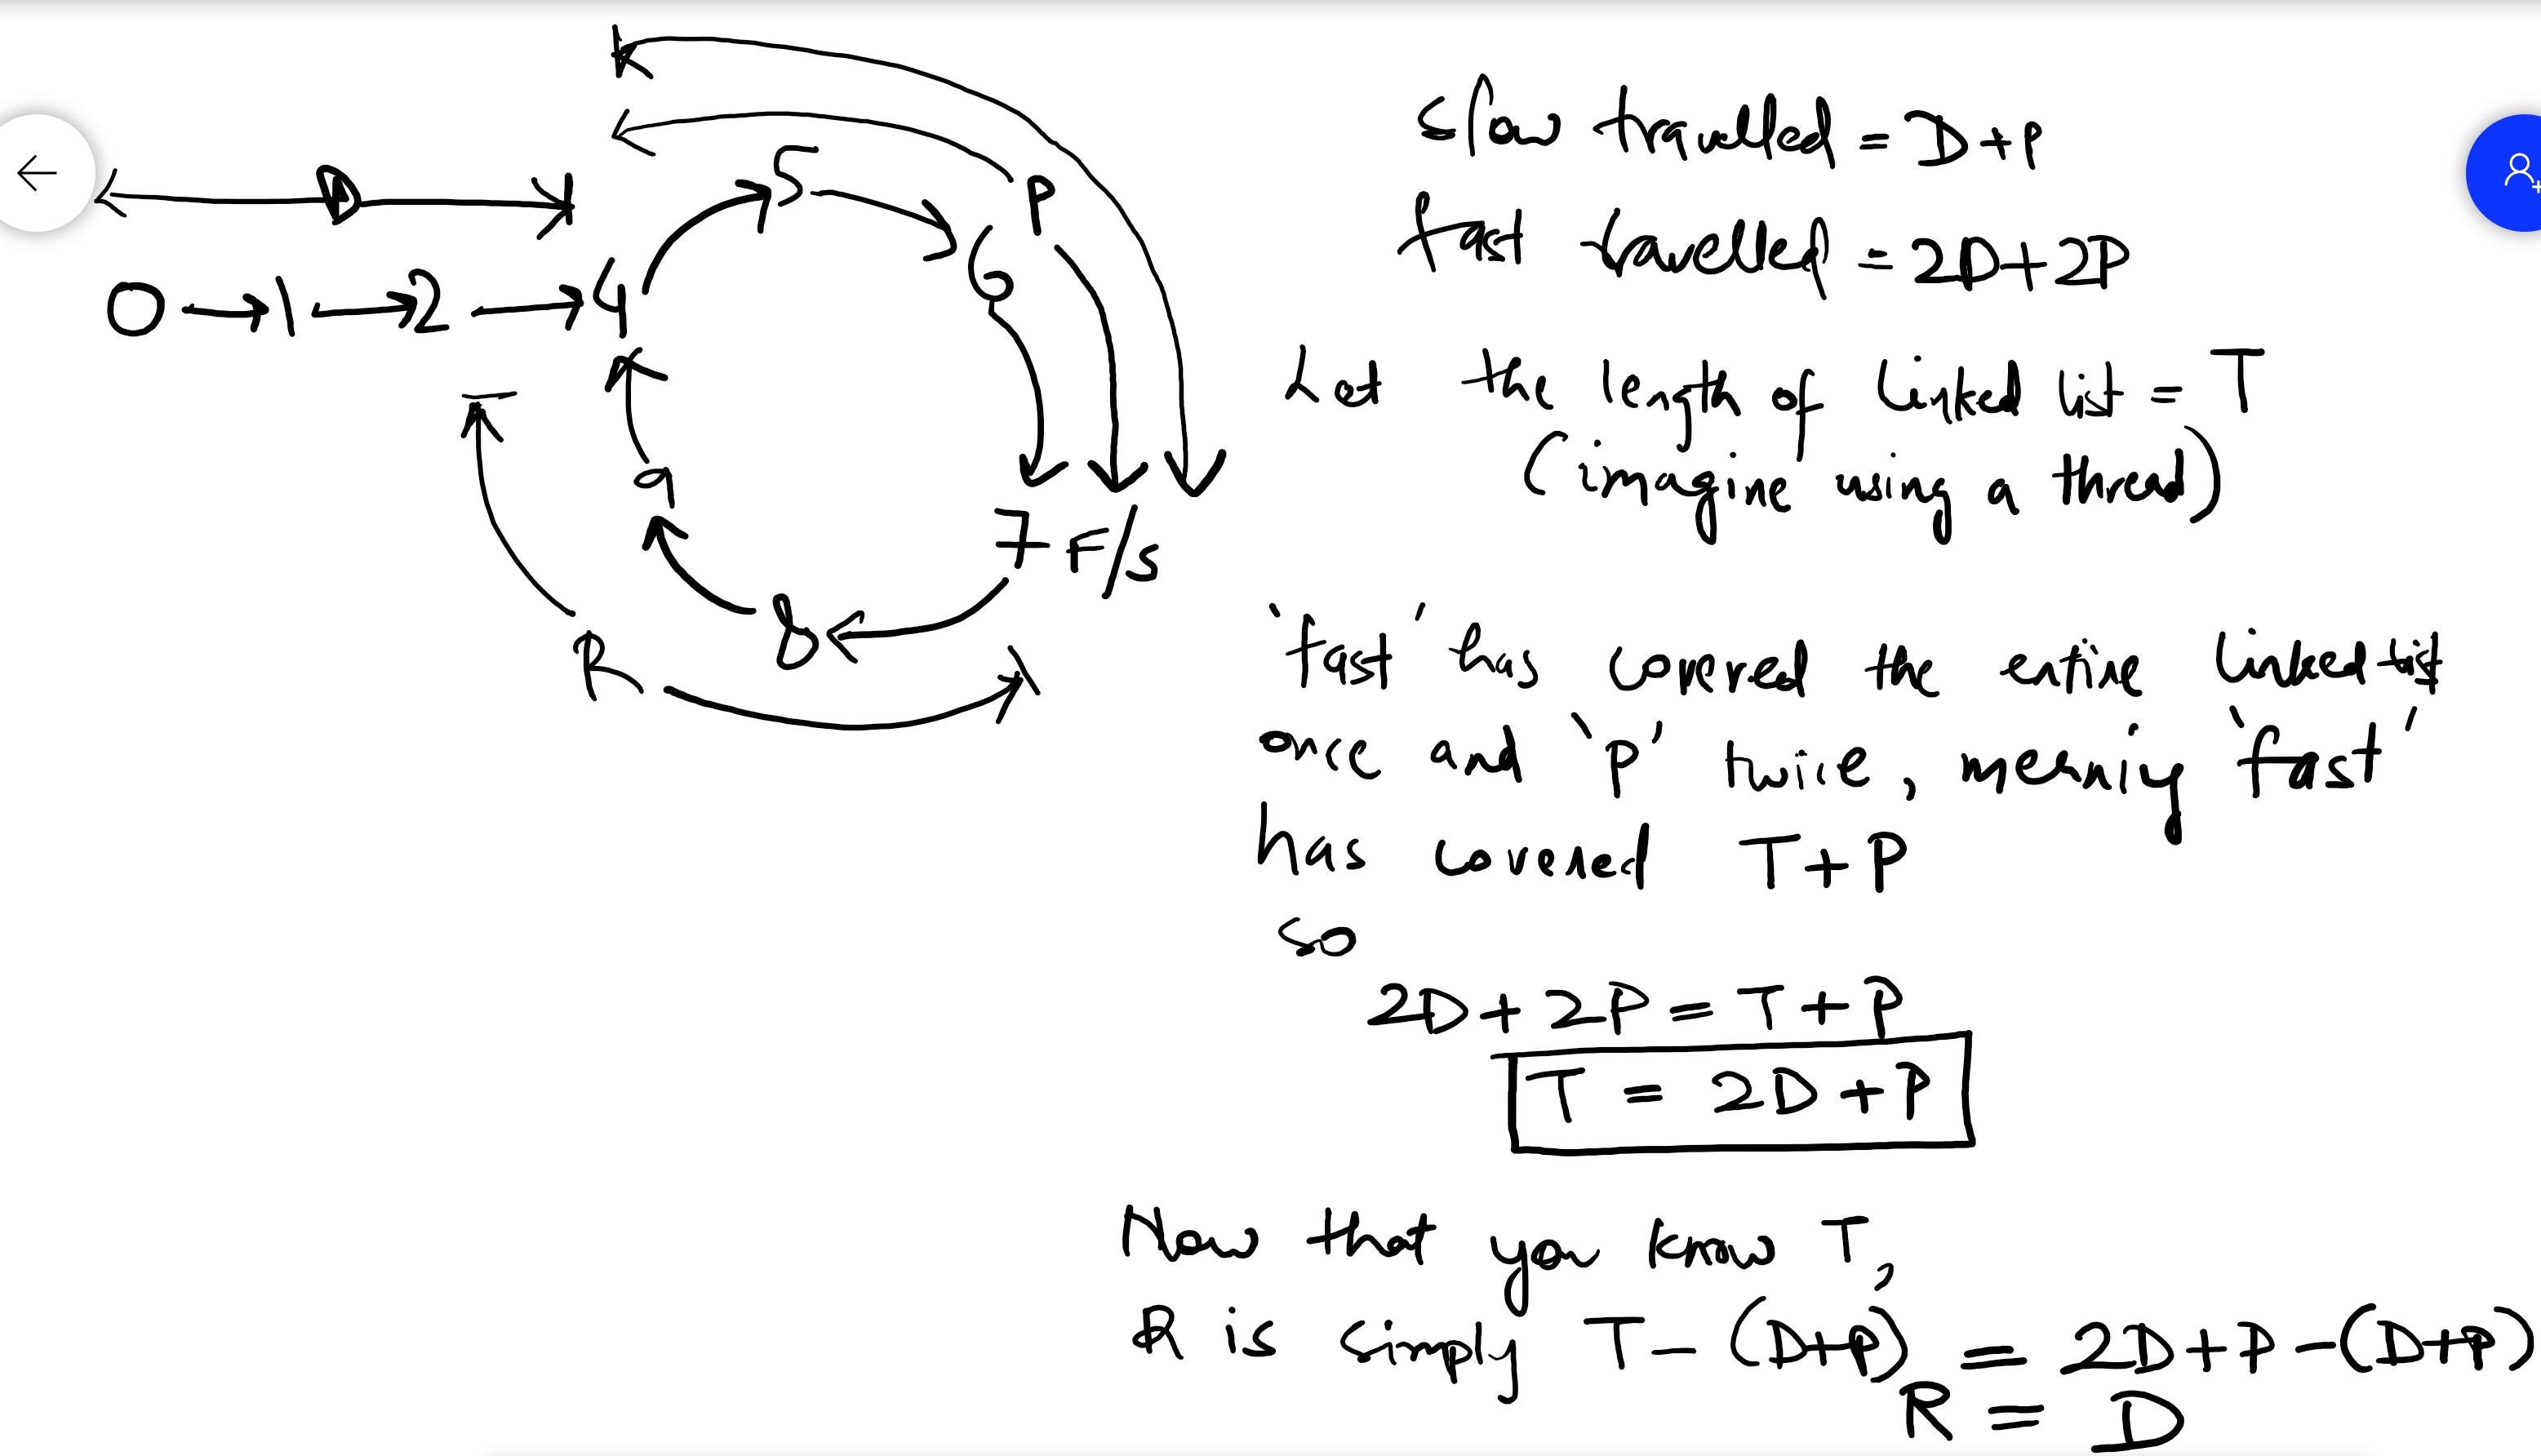 K
D
P
0 → 1 → 2 → 4
5
6
7 F/s
8
9
R
slow travelled = D+P
fast travelled = 2D+2P
Let the length of linked list = T
(imagine using a thread)
'fast' has covered the entire linked list
once and 'P' twice, meaning 'fast'
has covered T+P
so
2D+2P = T+P
T = 2D+P
Now that you know T,
R is simply T-(D+P) = 2D+P-(D+P)
R = D